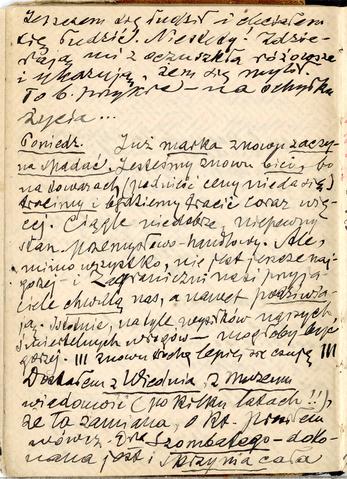 Jeszczem się łudził i chciałem
się łudzić. Niestety! Zdzie-
rają mi z oczu szkła różowsze
i ukazują, żem się mylił.
To b. przykre – na schyłku
życia...
Poniedz. Już marka znowu zaczy-
na spadać. Jesteśmy znowu bici, bo
na towarach (podnieść ceny nieda się)
tracimy i będziemy tracić coraz wię-
cej. Ciągle niedobrze, niepewny
stan przemysłowo-handlowy. Ale,
mimo wszystko, nie jest jeszcze naj-
gorzej – i zagraniczni nasi przyja-
ciele chwalą nas, a nawet podziwia-
ją. Istotnie, na tyle wysiłków naszych
śmiertelnych wrogów – mogłoby być
gorzej. !!! znowu trochę lepiej się czuję !!!
Dostałem z Wiednia, z Muzeum
wiadomość (po kilku latach!!),
że ta zamiana, o kt. pisałem
mówcz. Dra Szombatego – doko-
nana jest i skrzynia cała